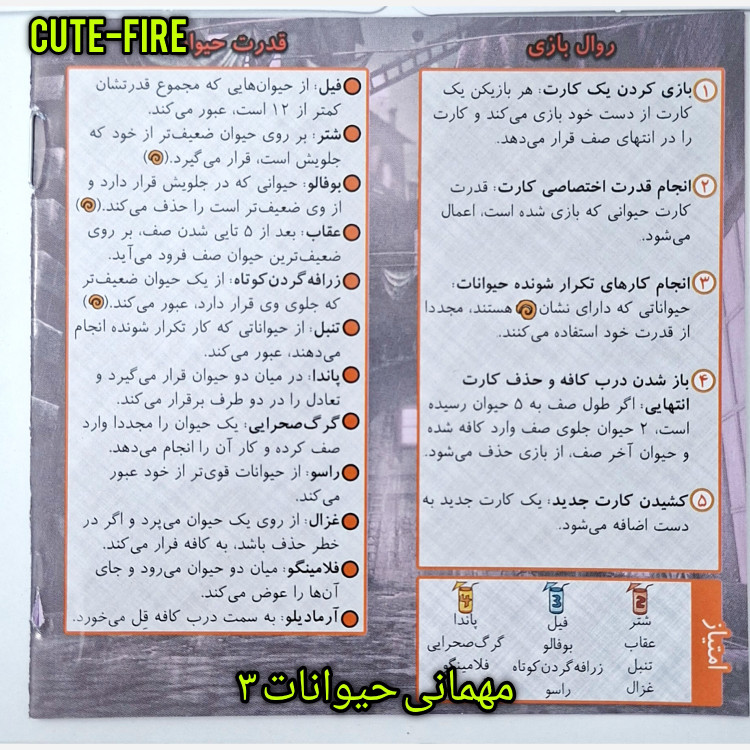 CUTE-FIRE
روال بازی
۱ بازی کردن یک کارت: هر بازیکن یک
کارت از دست خود بازی می‌کند و کارت
را در انتهای صف قرار می‌دهد.
۲ انجام قدرت اختصاصی کارت: قدرت
کارت حیوانی که بازی شده است، اعمال
می‌شود.
۳ انجام کارهای تکرار شونده حیوانات:
حیواناتی که دارای نشان هستند، مجددا
از قدرت خود استفاده می‌کنند.
۴ باز شدن درب کافه و حذف کارت
انتهایی: اگر طول صف به ۵ حیوان رسیده
است، ۲ حیوان جلوی صف وارد کافه شده
و حیوان آخر صف، از بازی حذف می‌شود.
۵ کشیدن کارت جدید: یک کارت جدید به
دست اضافه می‌شود.
امتیاز
2 3 4
شتر فیل پاندا
عقاب بوفالو گرگ‌صحرایی
تنبل زرافه‌گردن‌کوتاه فلامینگو
غزال راسو
قدرت
فیل: از حیوان‌هایی که مجموع قدرتشان
کمتر از ۱۲ است، عبور می‌کند.
شتر: بر روی حیوان ضعیف‌تر از خود که
جلویش است، قرار می‌گیرد.()
بوفالو: حیوانی که در جلویش قرار دارد و
از وی ضعیف‌تر است را حذف می‌کند.()
عقاب: بعد از ۵ تایی شدن صف، بر روی
ضعیف‌ترین حیوان صف فرود می‌آید.
زرافه‌گردن‌کوتاه: از یک حیوان ضعیف‌تر
که جلوی وی قرار دارد، عبور می‌کند.()
تنبل: از حیواناتی که کار تکرار شونده انجام
می‌دهند، عبور می‌کند.
پاندا: در میان دو حیوان قرار می‌گیرد و
تعادل را در دو طرف برقرار می‌کند.
گرگ‌صحرایی: یک حیوان را مجددا وارد
صف کرده و کار آن را انجام می‌دهد.
راسو: از حیوانات قوی‌تر از خود عبور
می‌کند.
غزال: از روی یک حیوان می‌پرد و اگر در
خطر حذف باشد، به کافه فرار می‌کند.
فلامینگو: میان دو حیوان می‌رود و جای
آن‌ها را عوض می‌کند.
آرمادیلو: به سمت درب کافه قِل می‌خورد.
مهمانی حیوانات ۳